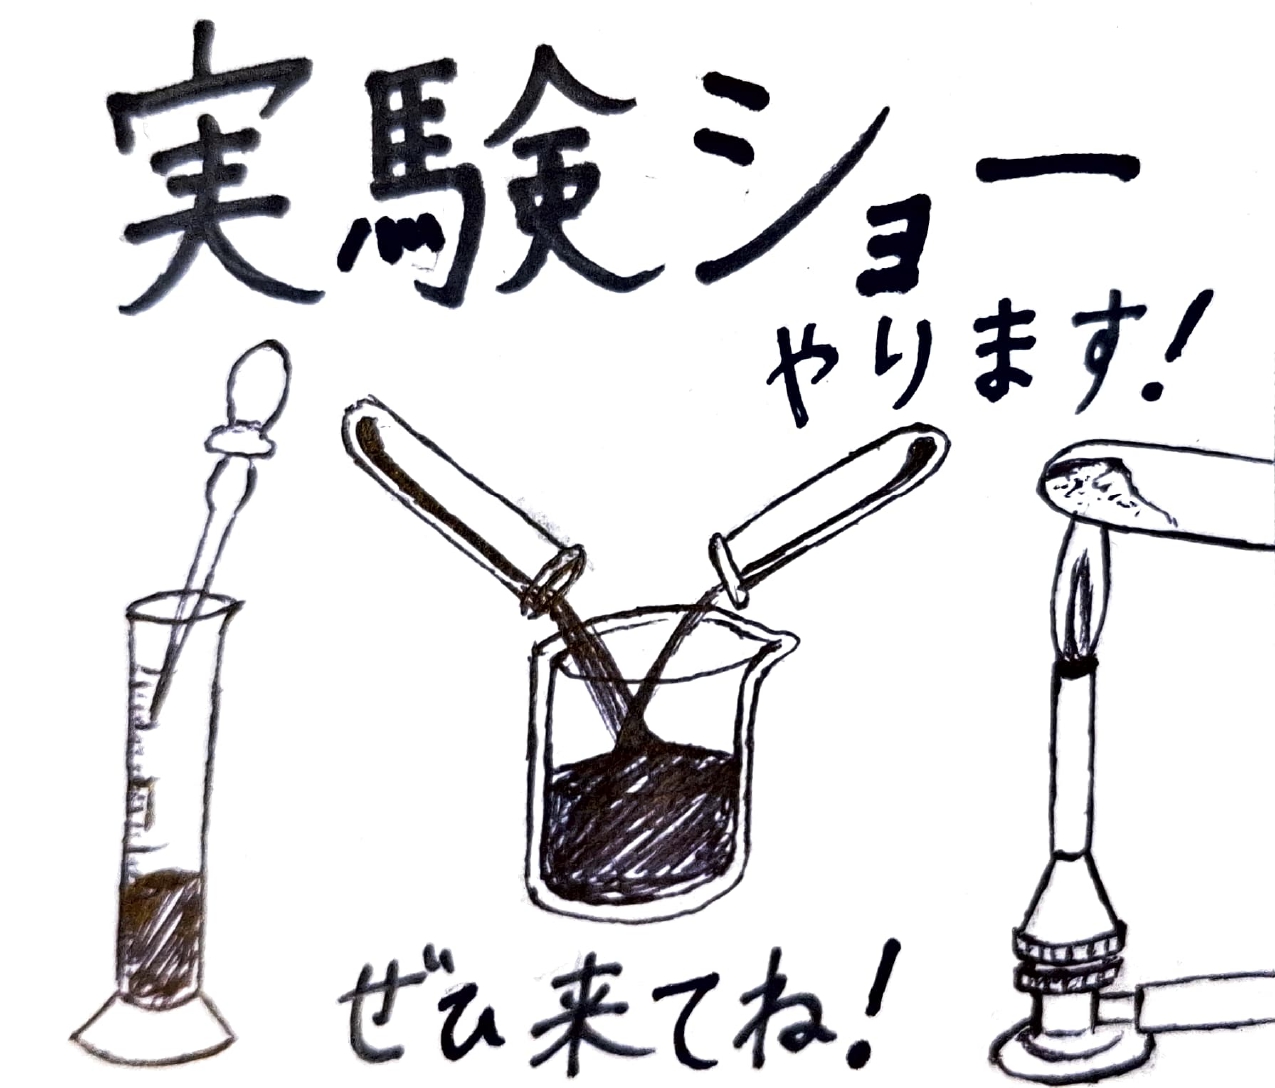 実験ショー
やります!
ぜひ来てね!